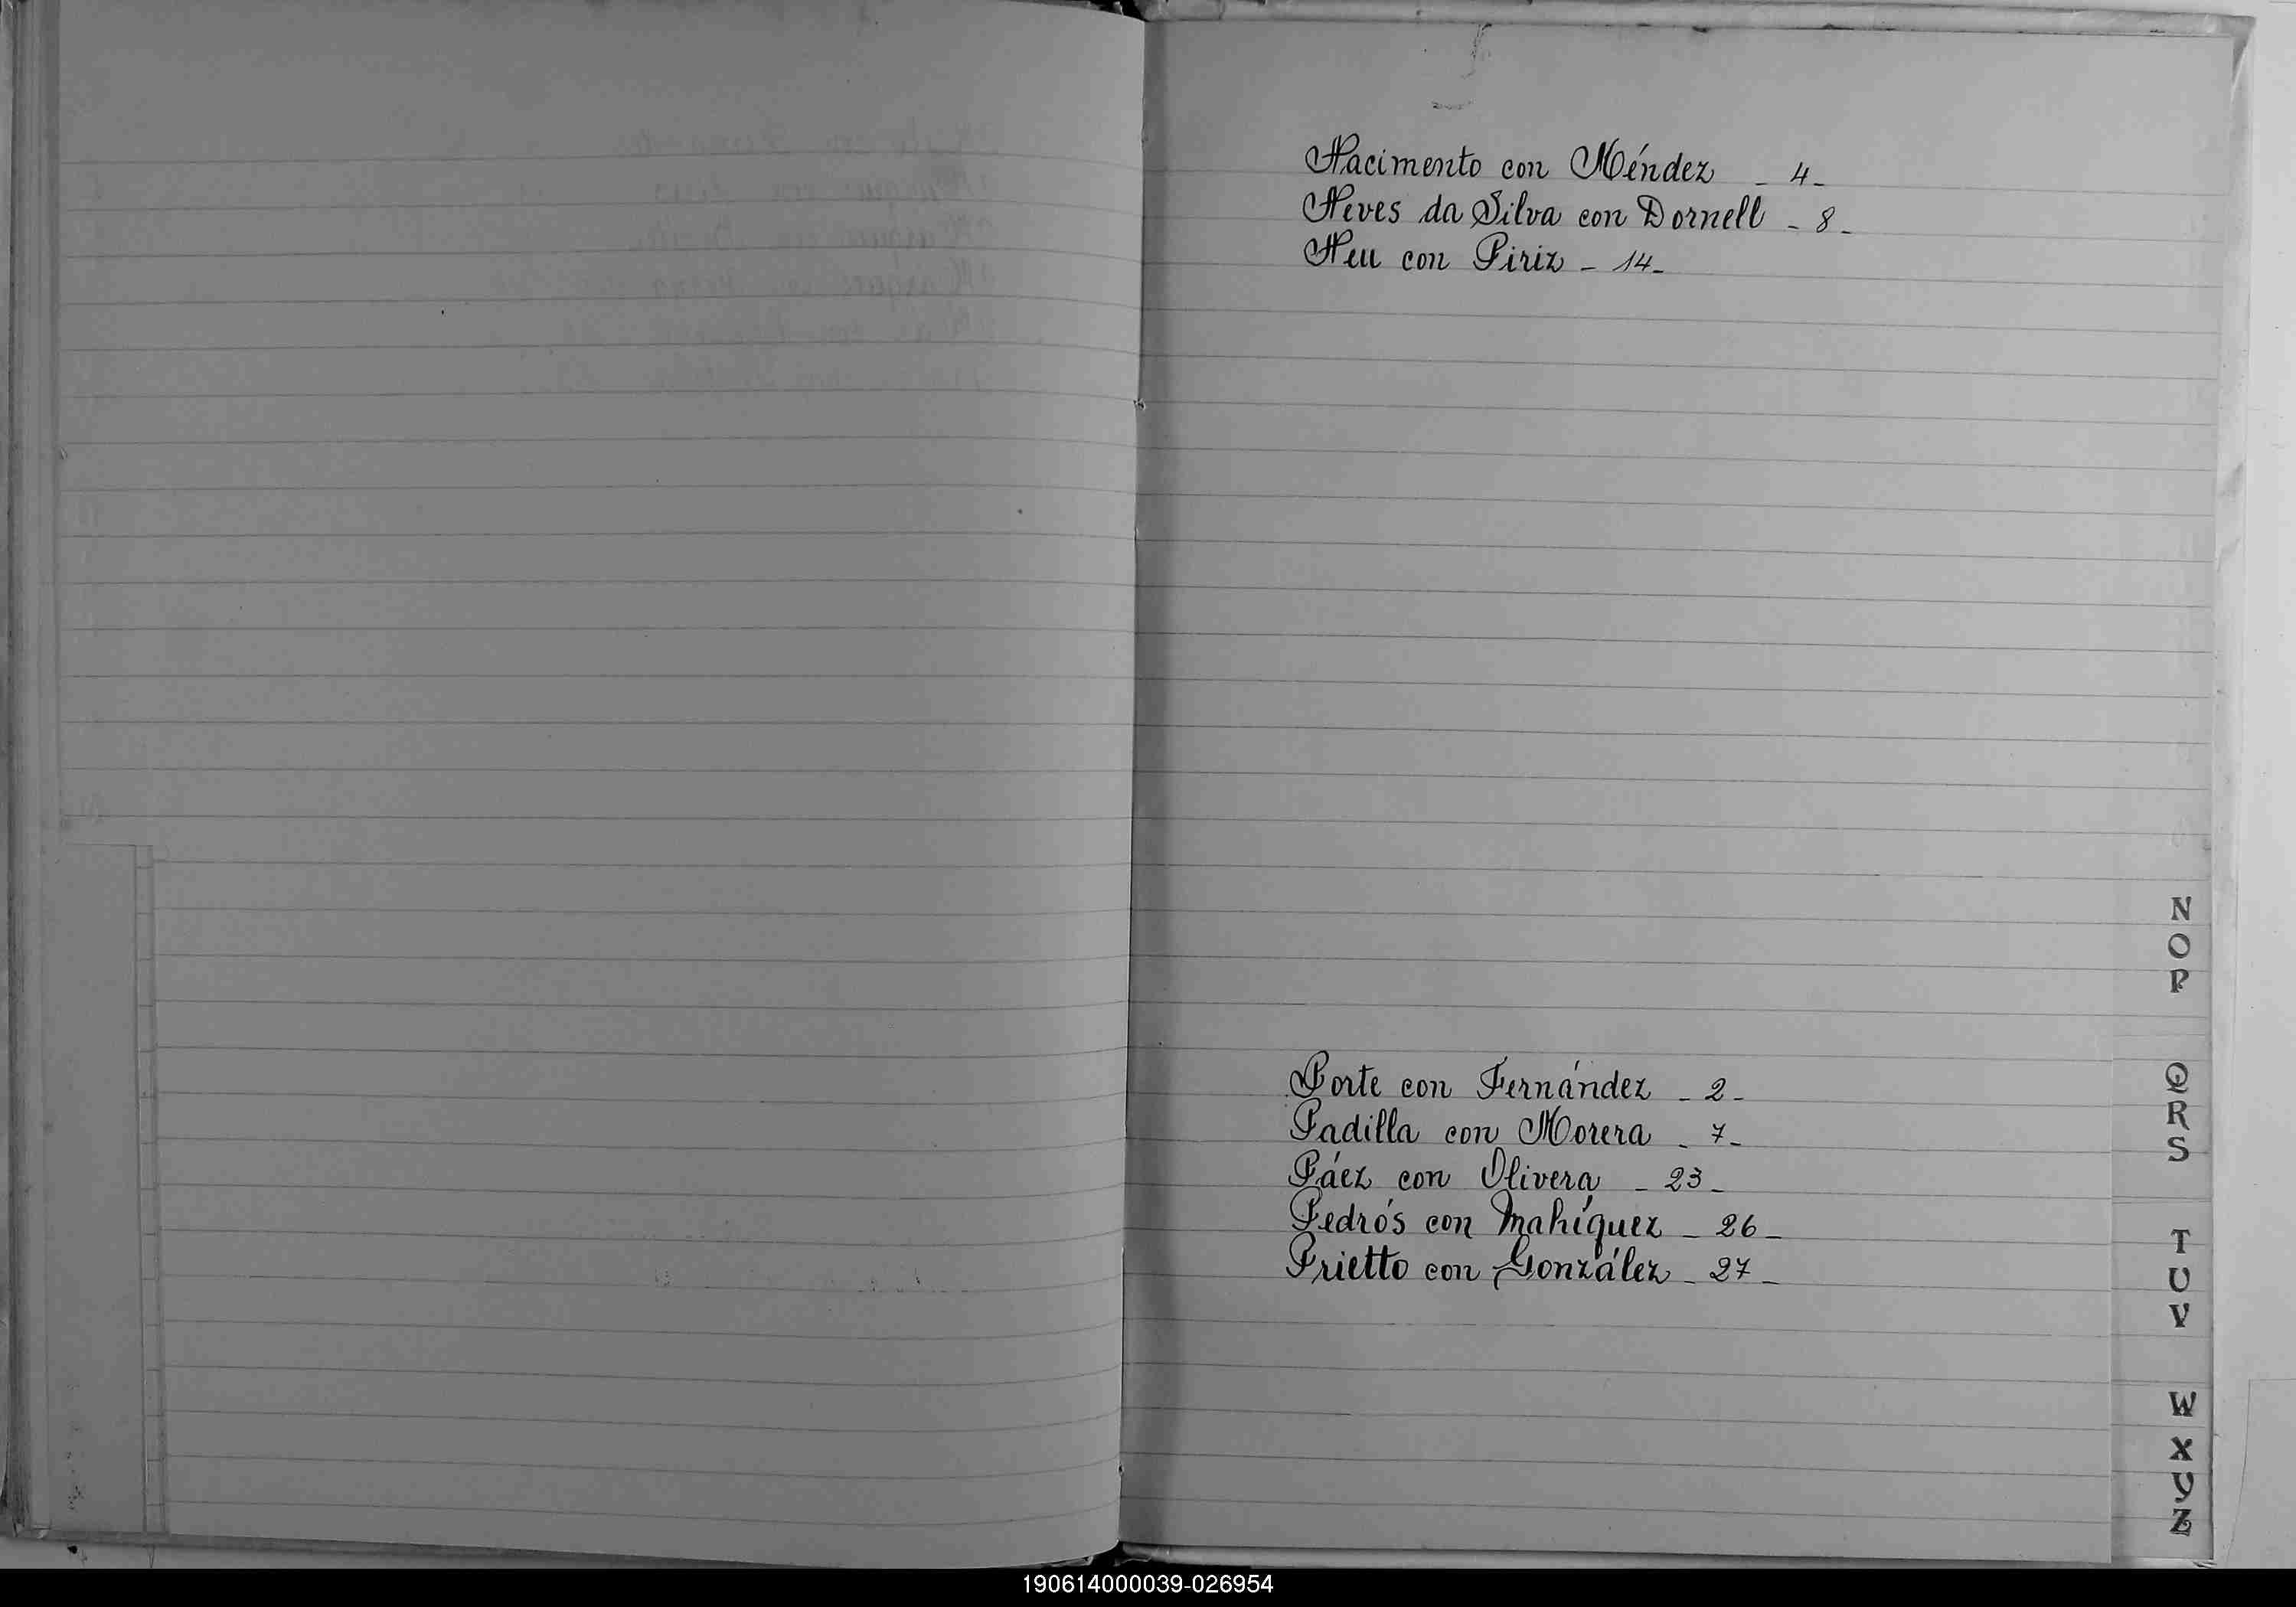 Nacimento con Méndez - 4-
Neves da Silva con Dornell - 8-
Neu con Piriz - 14-
N
O
P
Q
R
S
T
U
V
W
X
Y
Z
Porte con Fernández - 2-
Padilla con Morera - 7-
Páez con Olivera - 23-
Pedrós con Mahíquez - 26-
Prietto con González - 27-
190614000039-026954